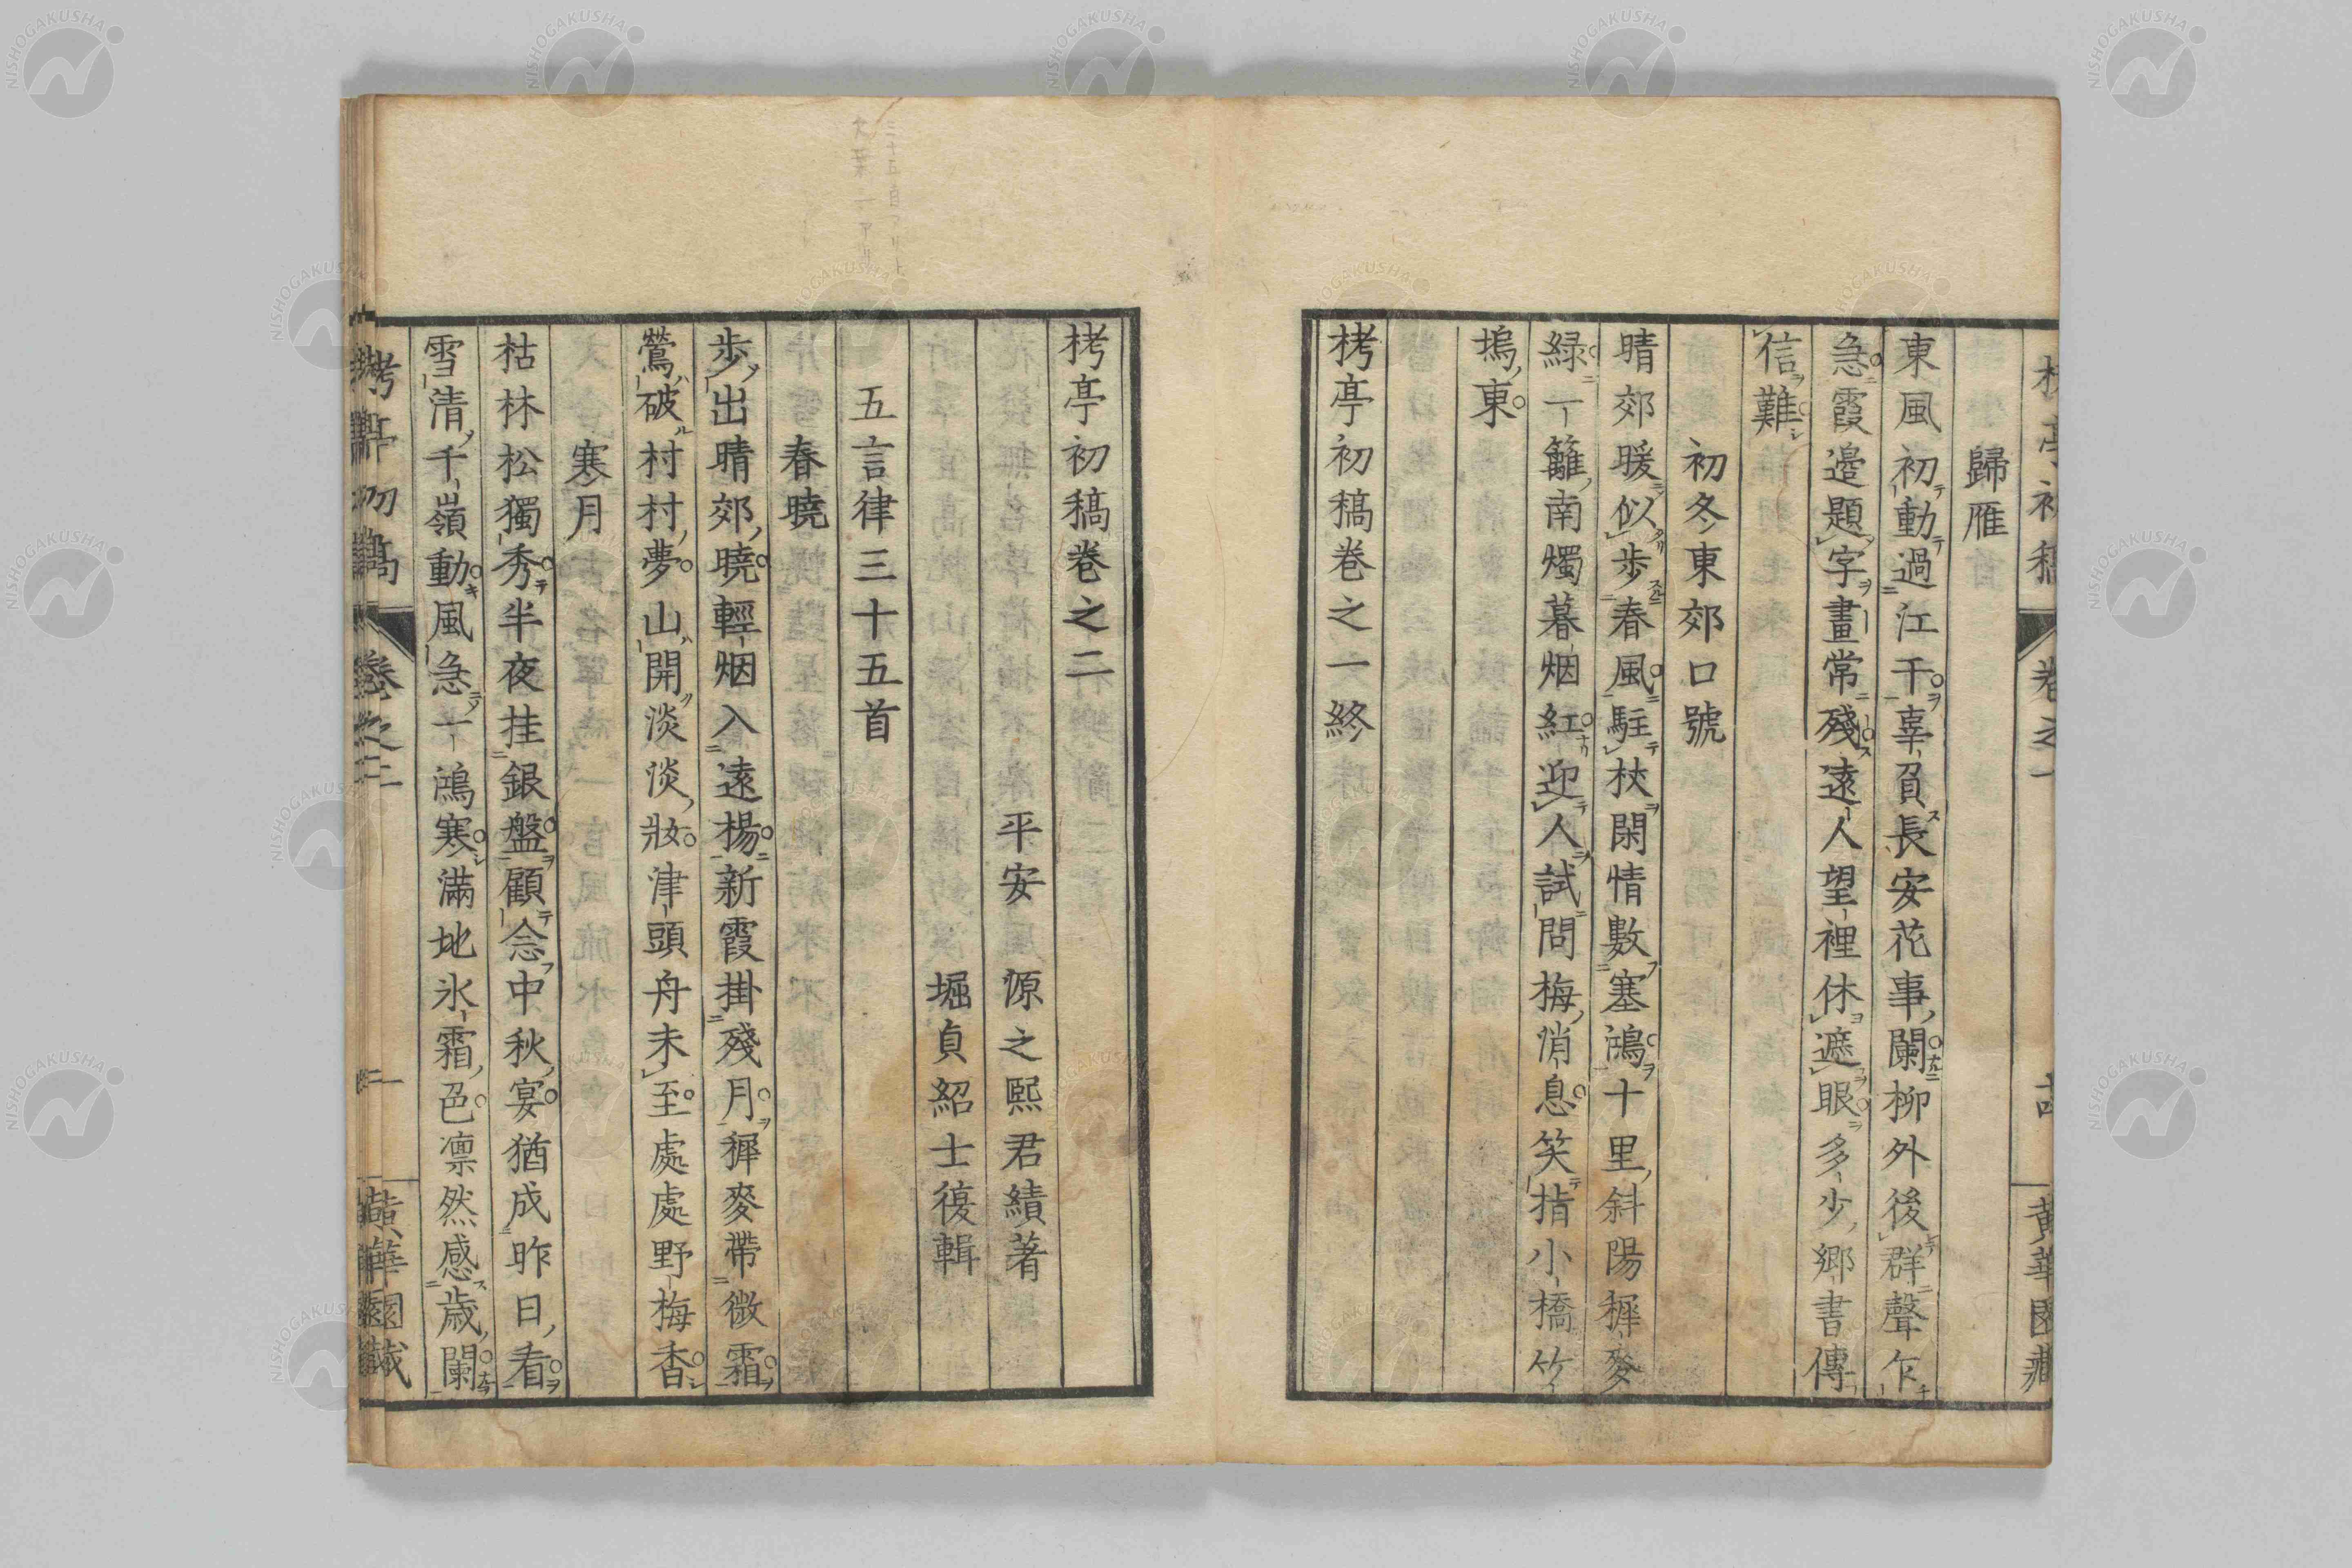 歸雁
東風初動過江干辜負長安花事闌柳外後群聲乍
急霞邉題字畫常殘遠人望裡休遮眼多少郷書傳
信難
初冬東郊口號
晴郊暖似歩春風駐杖閑情數塞鴻十里斜陽穉麥
緑一籬南燭暮烟紅迎人試問梅消息笑指小橋竹
塢東
栲亭初稿巻之一終
栲亭初稿巻之二
平安 源之熈君績著
堀貞紹士復輯
五言律三十五首
春曉
歩出晴郊曉輕烟入遠楊新霞掛殘月穉麥帶微霜
鶯破村村夢山開淡淡妝津頭舟未至處處野梅香
寒月
枯林松獨秀半夜挂銀盤顧念中秋宴猶成昨日看
雪清千嶺動風急一鴻寒滿地氷霜色凛然感歳闌
栲亭初稿 巻之二 一 黄華園藏